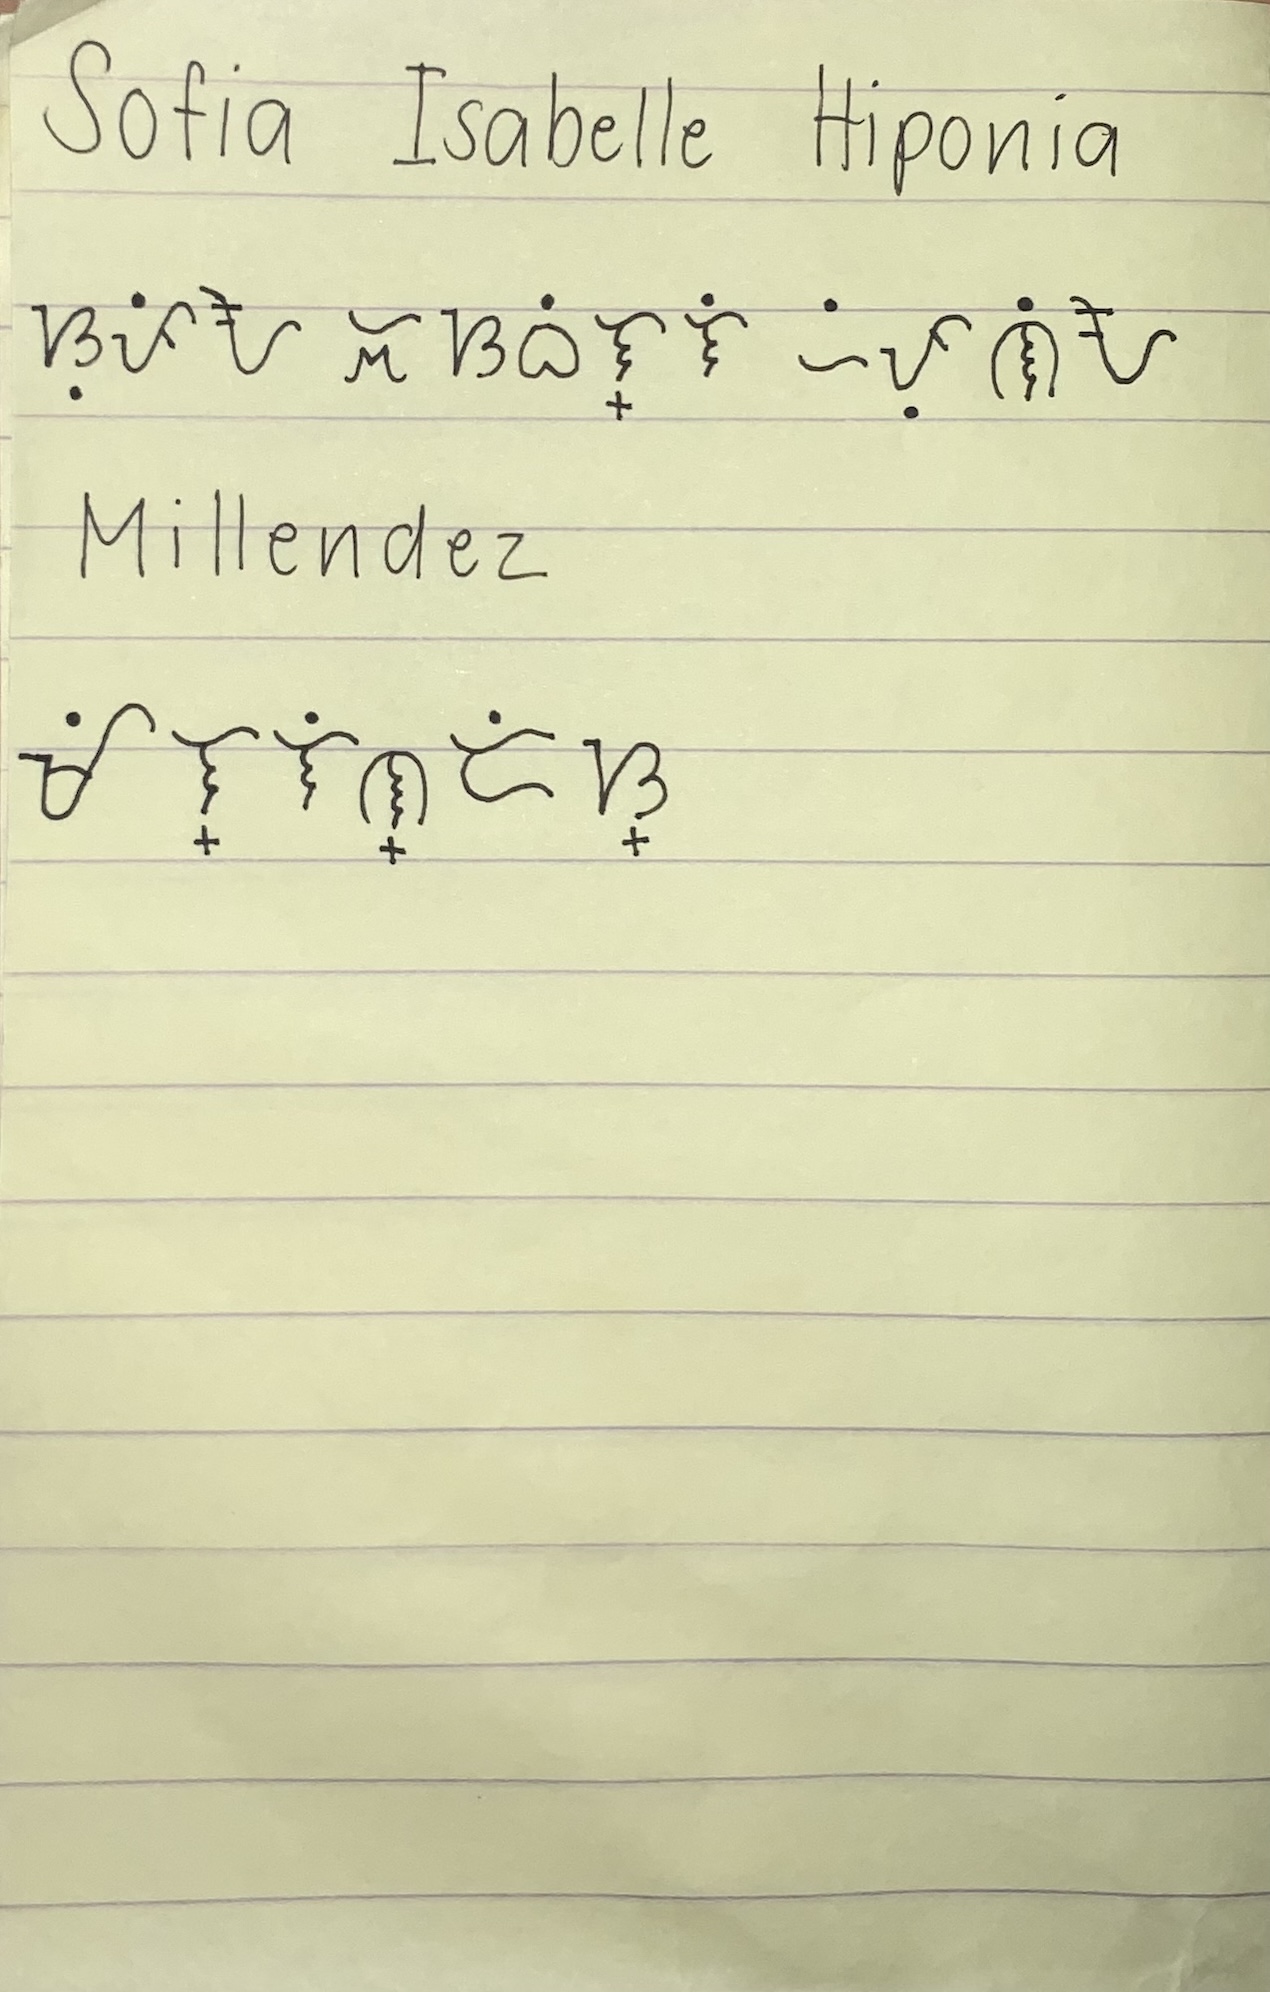 Sofia Isabelle Hiponia
ᜐᜓᜉᜒᜀ ᜁᜐᜊᜒᜎ᜔ᜎᜒ ᜑᜒᜉᜓᜈᜒᜀ
Millendez
ᜋᜒᜎ᜔ᜎᜒᜈ᜔ᜇᜒᜐ᜔